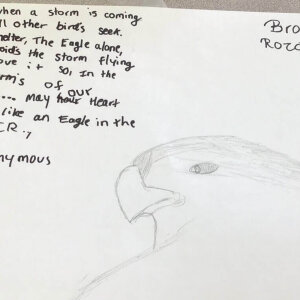 when a storm is coming
ll other bird's seek.
helter, The Eagle alone,
oid's the storm flying
ove it so, In the
orm's of our
.... may hour Heart
like an Eagle in the
CR.,
nymous
Bro
Roz